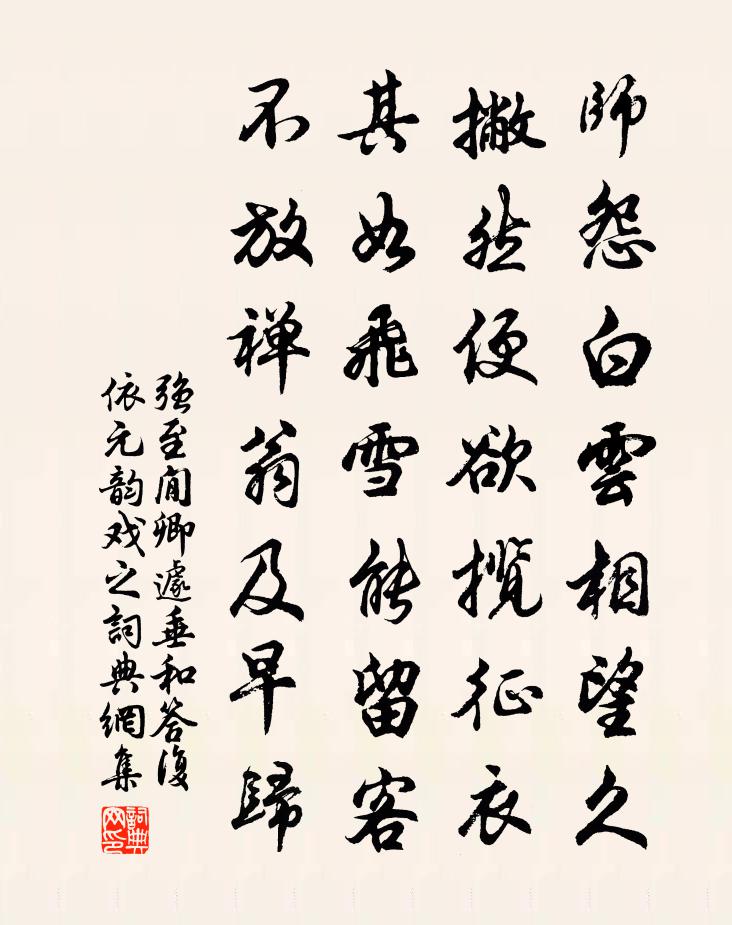 師怨白雲相望久
撇然便欲揽征衣
其如飛雪能留客
不放禅翁及早歸
强至閒卿遽垂和答復
依元韵戏之詞典網集
詞典
网印